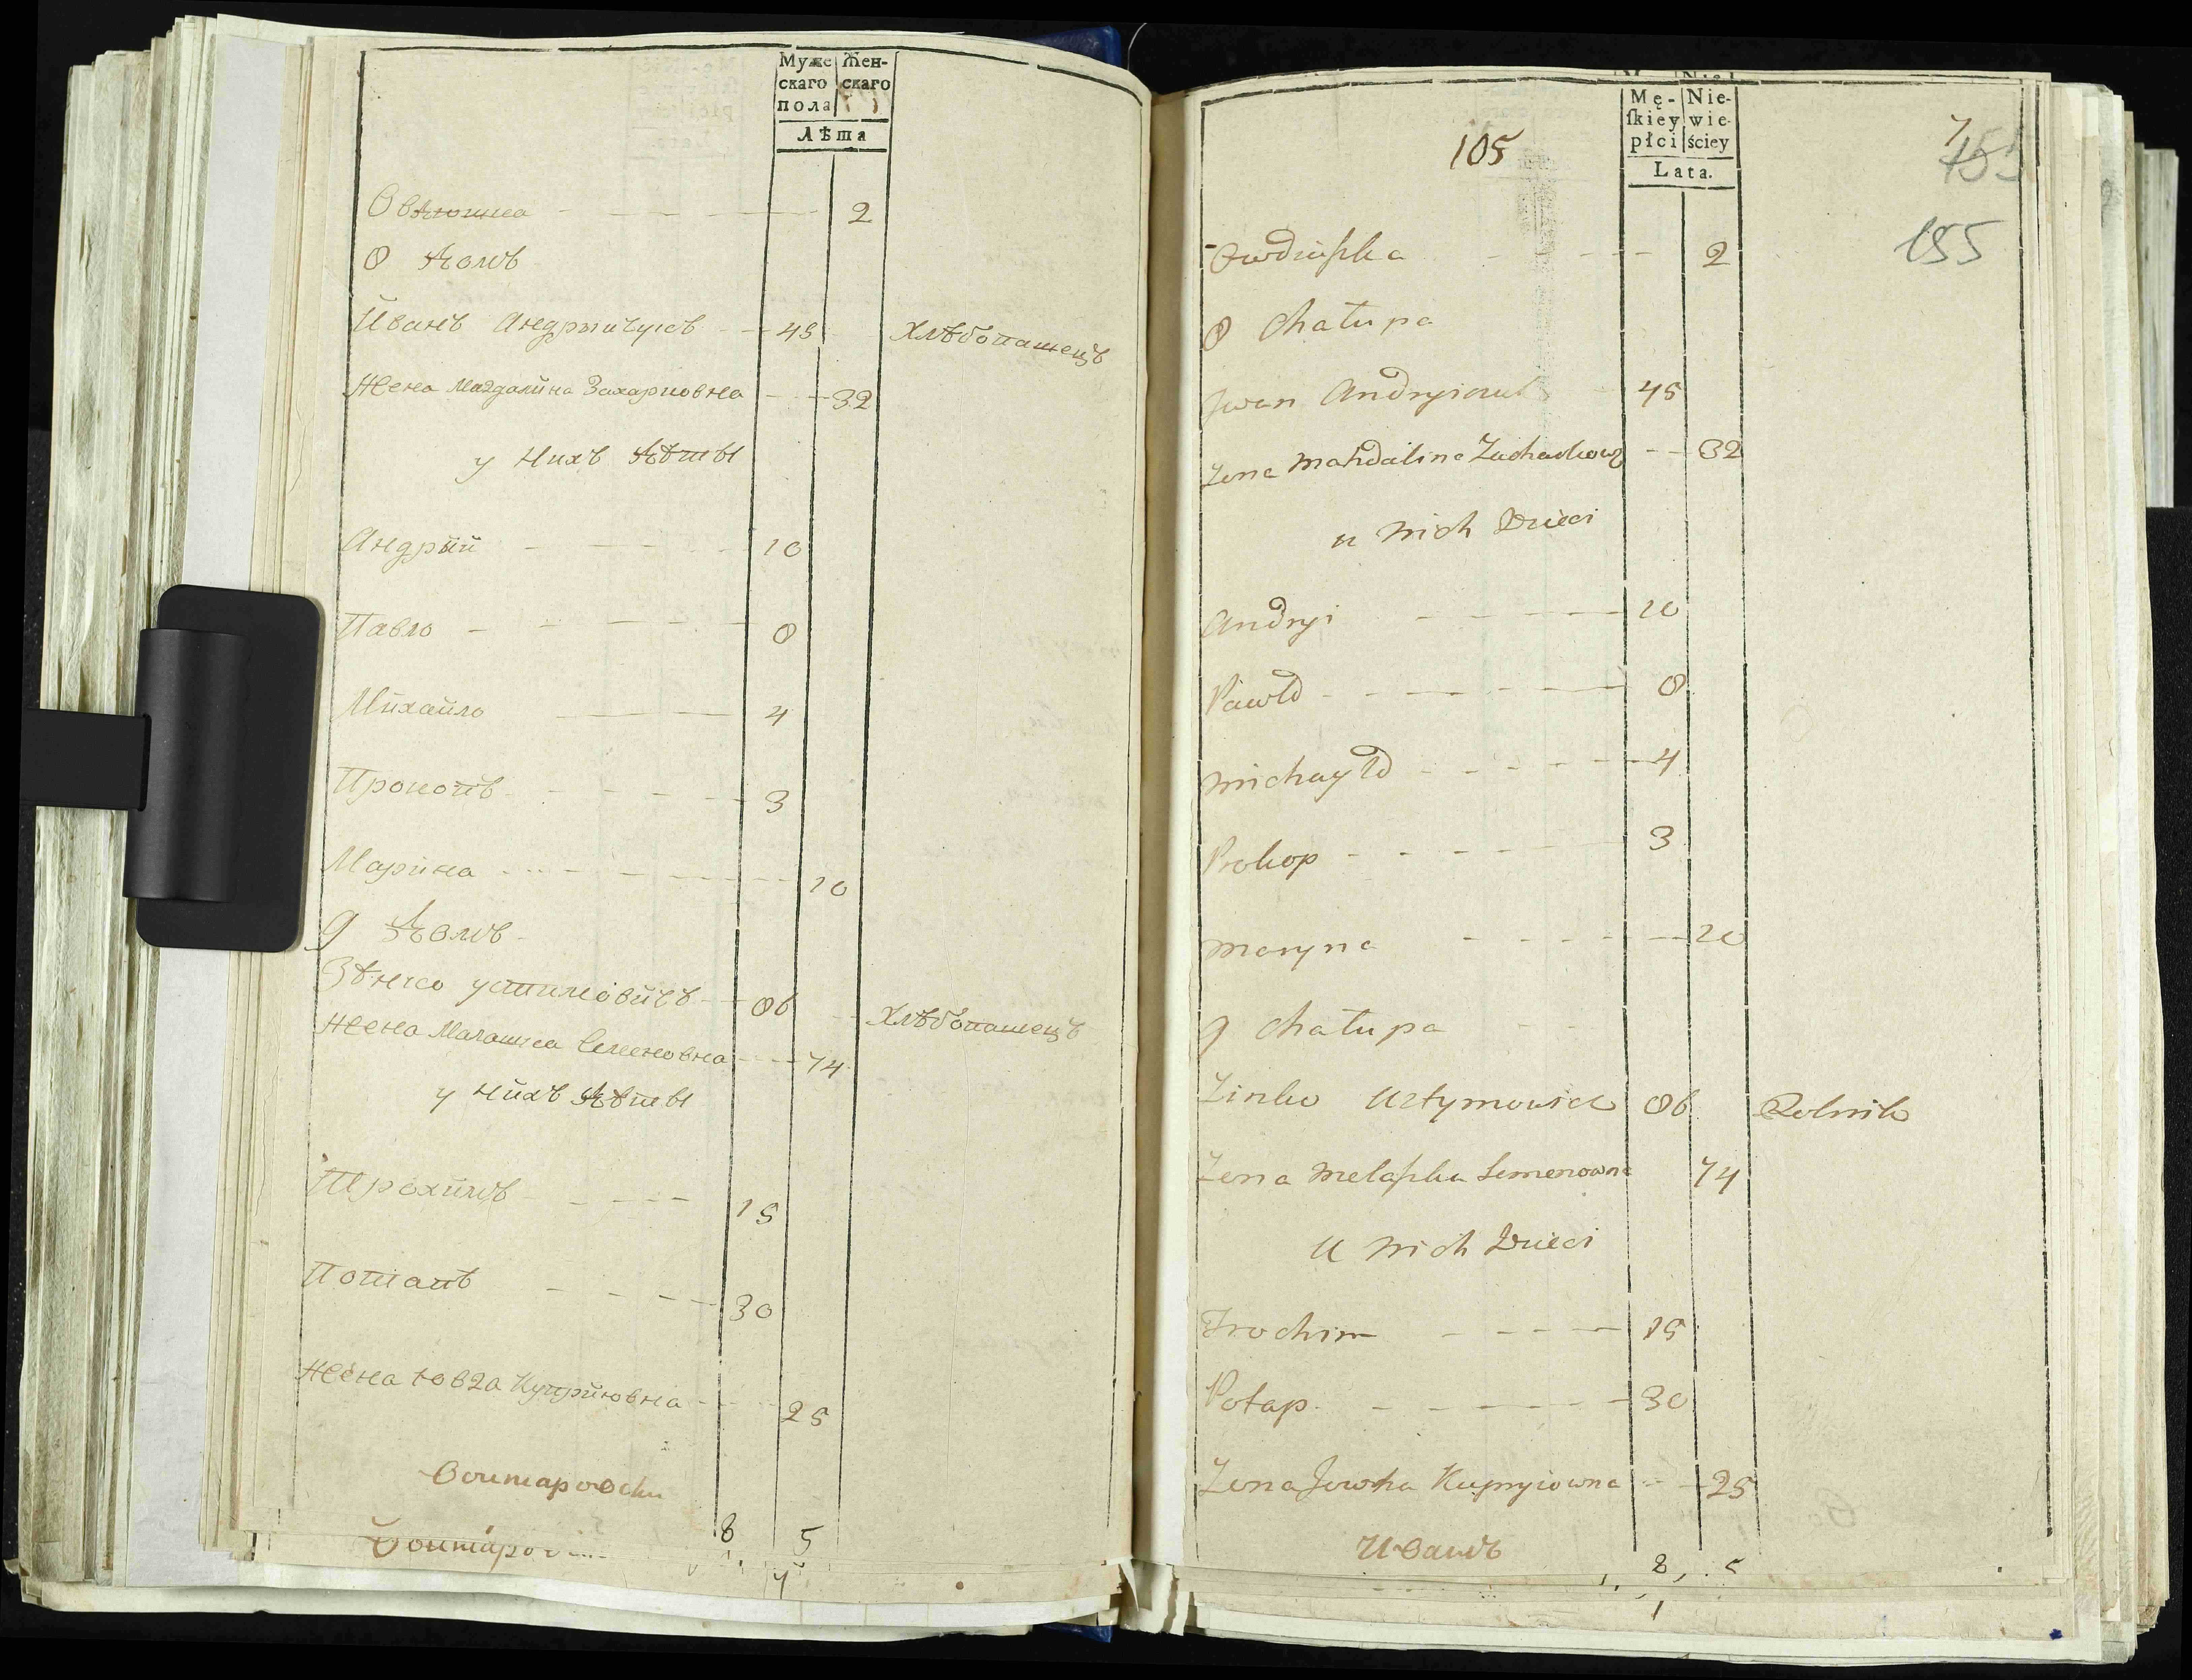 Муже Жен-
скаго скаго
пола
Лѣта
Овдюшка 2
8 домъ
Иванъ Андрыичукъ 45 Хлѣбопашецъ
Жена Магдалина Захарковна 32
у нихъ дѣти
Андрый 10
Павло 8
Михайло 4
Прокопъ 3
Марина 10
9 домъ
Зѣнко устимовичъ 86 Хлѣбопашецъ
Жена Малашка Семеновна 74
у нихъ дѣти
Трохимъ 15
Потапъ 30
Жена Ювга Куприювна 25
8 5
Mę- Nie-
ſkiey wie-
płci ściey
Lata.
105
155
Owdiuszka 2
8 Chałupa
Iwan Andryiczuk 45
Zona Mahdalina Zacharkow 32
u nich Dzieci
Andryi 10
Pawło 8
Michayło 4
Prokop 3
Maryna 10
9 Chałupa
Zinko Ustymowicz 86 Rolnik
Zona Melaszka Semenowna 74
u nich Dzieci
Trochim 15
Potap 30
Zona Jowha Kupryiowna 25
Иванъ
8 5